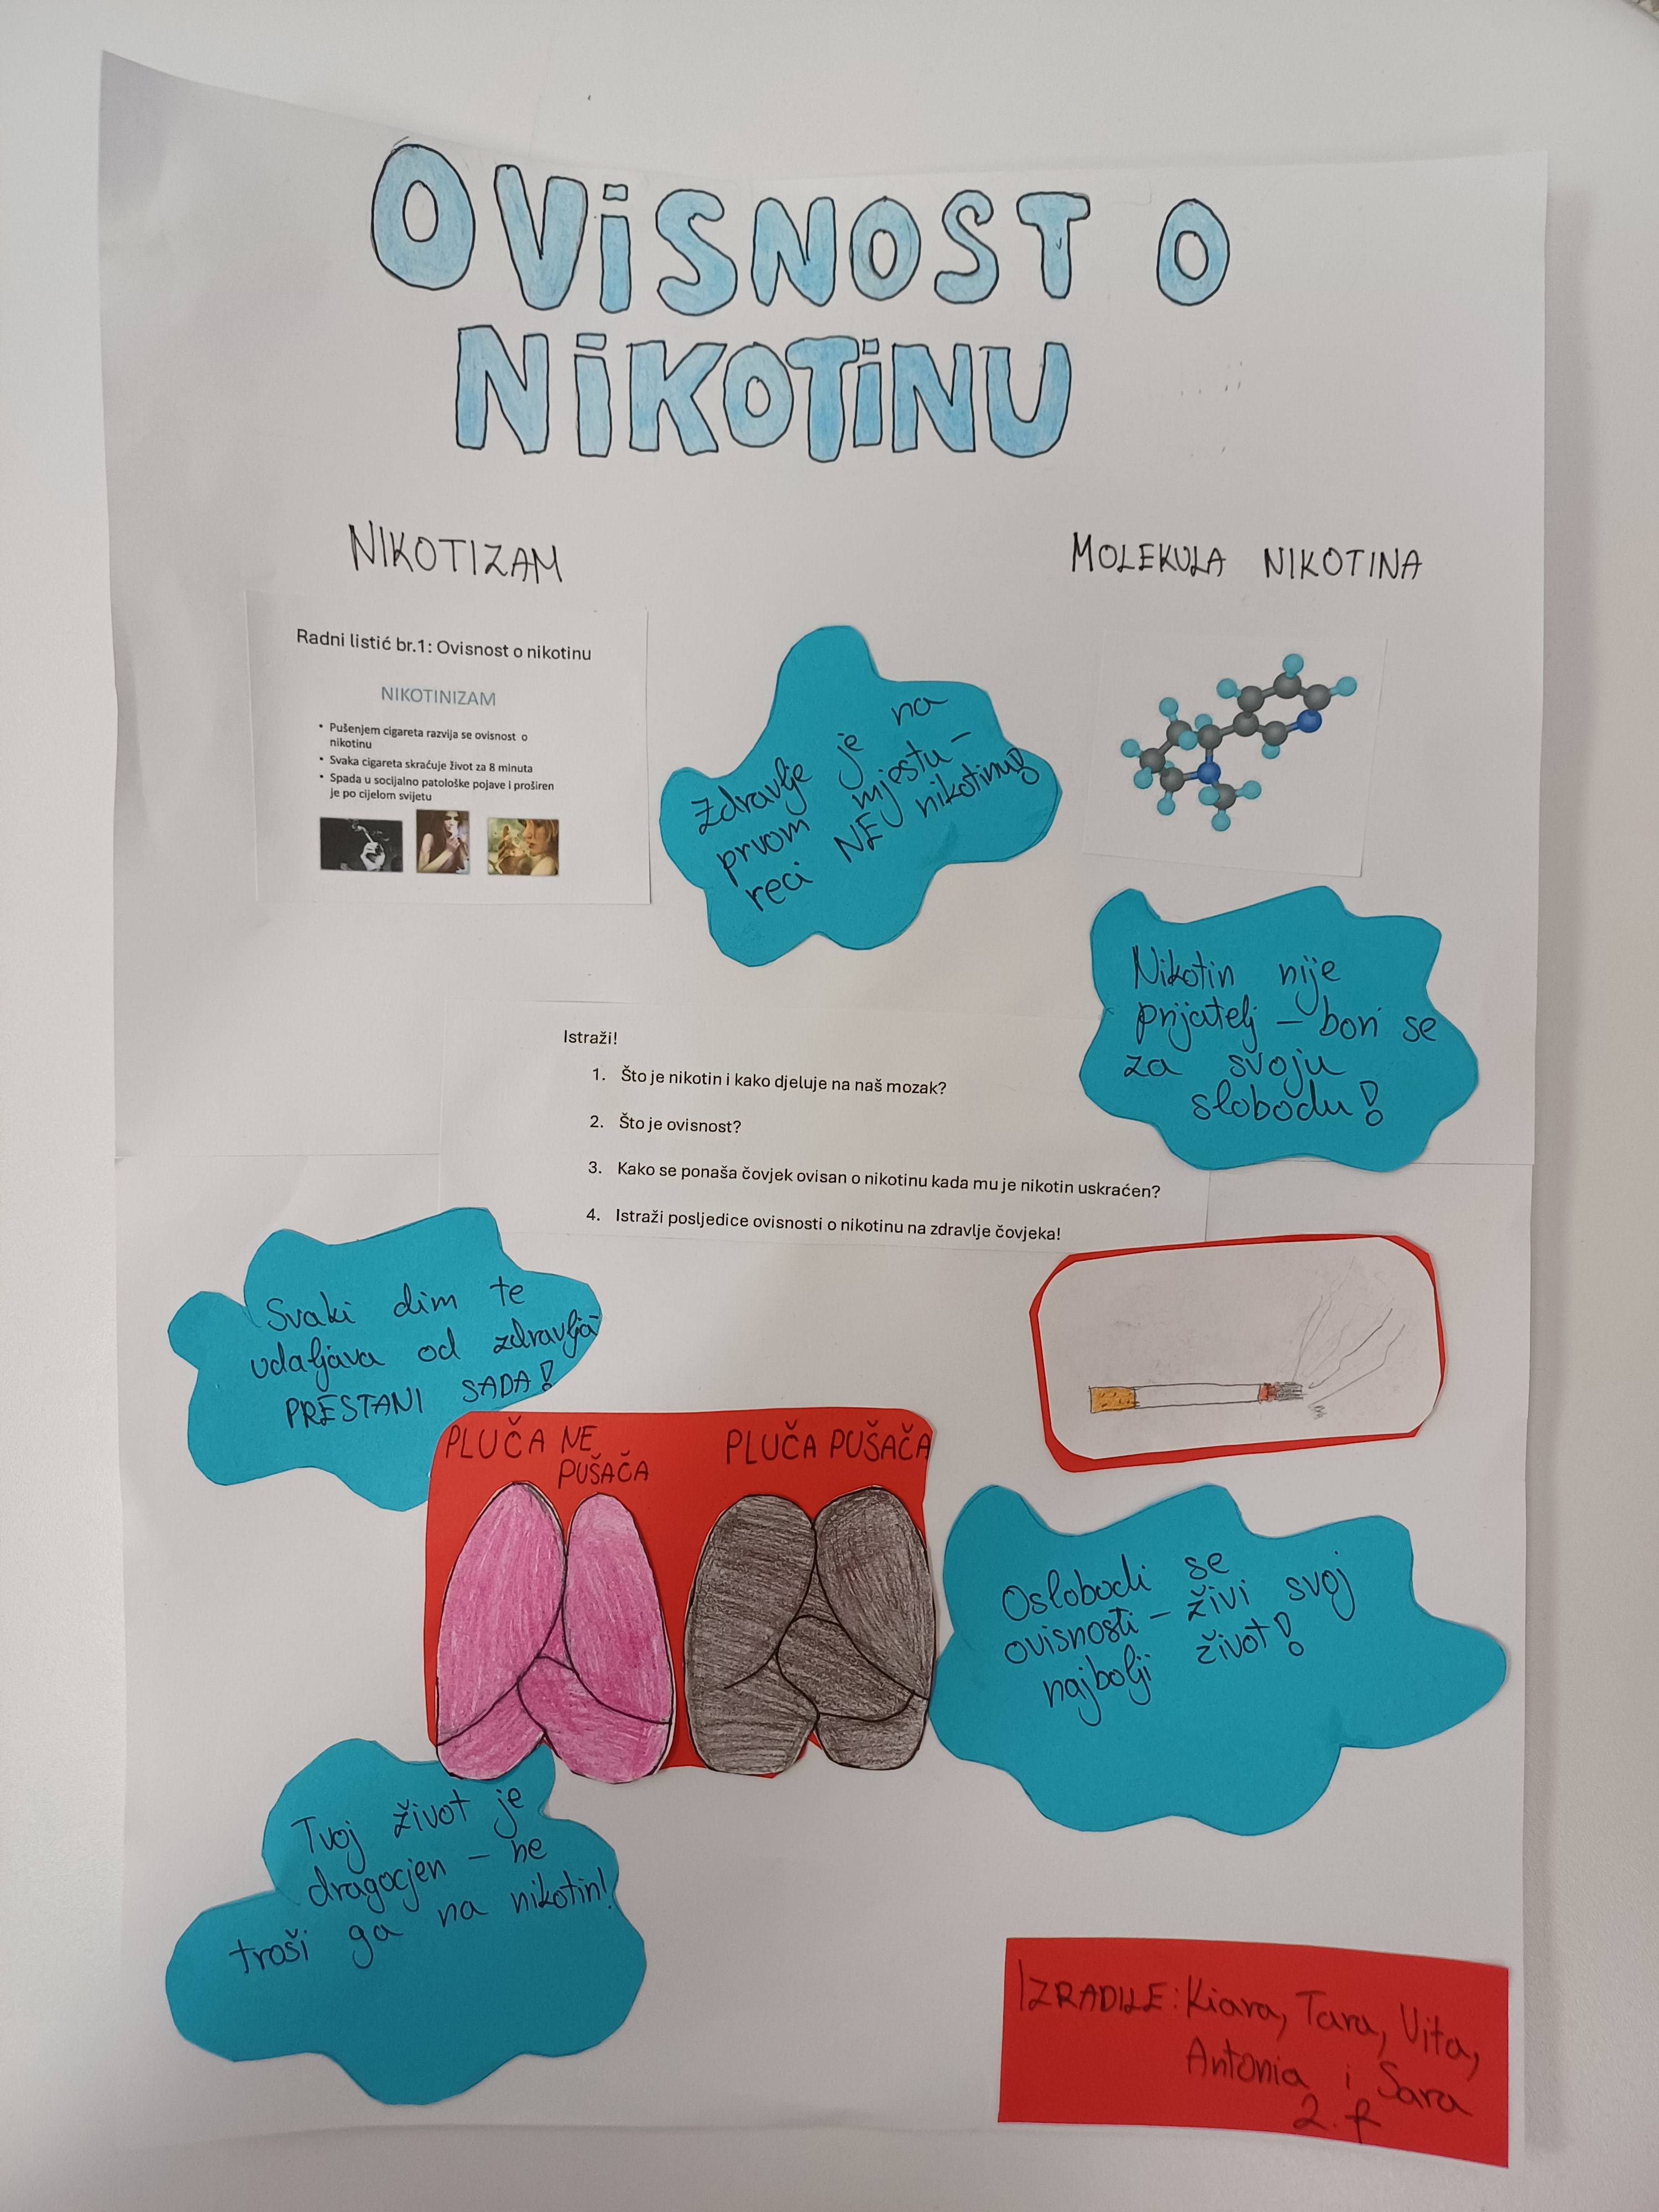 OViSNOST O
NiKOTiNU
NIKOTIZAM
MOLEKULA NIKOTINA
Radni listić br.1: Ovisnost o nikotinu
NIKOTINIZAM
• Pušenjem cigareta razvija se ovisnost o
nikotinu
• Svaka cigareta skraćuje život za 8 minuta
• Spada u socijalno patološke pojave i proširen
je po cijelom svijetu
Zdravlje je na
prvom mjestu –
reci NE nikotinu!
Nikotin nije
prijatelj – bori se
za svoju
slobodu!
Istraži!
1. Što je nikotin i kako djeluje na naš mozak?
2. Što je ovisnost?
3. Kako se ponaša čovjek ovisan o nikotinu kada mu je nikotin uskraćen?
4. Istraži posljedice ovisnosti o nikotinu na zdravlje čovjeka!
Svaki dim te
udaljava od zdravlja
PRESTANI SADA!
PLUČA NE
PUŠAČA
PLUČA PUŠAČA
Oslobodi se
ovisnosti – živi svoj
najbolji život!
Tvoj život je
dragocjen – ne
troši ga na nikotin!
IZRADILE: Kiara, Tara, Vita,
Antonia i Sara
2. f